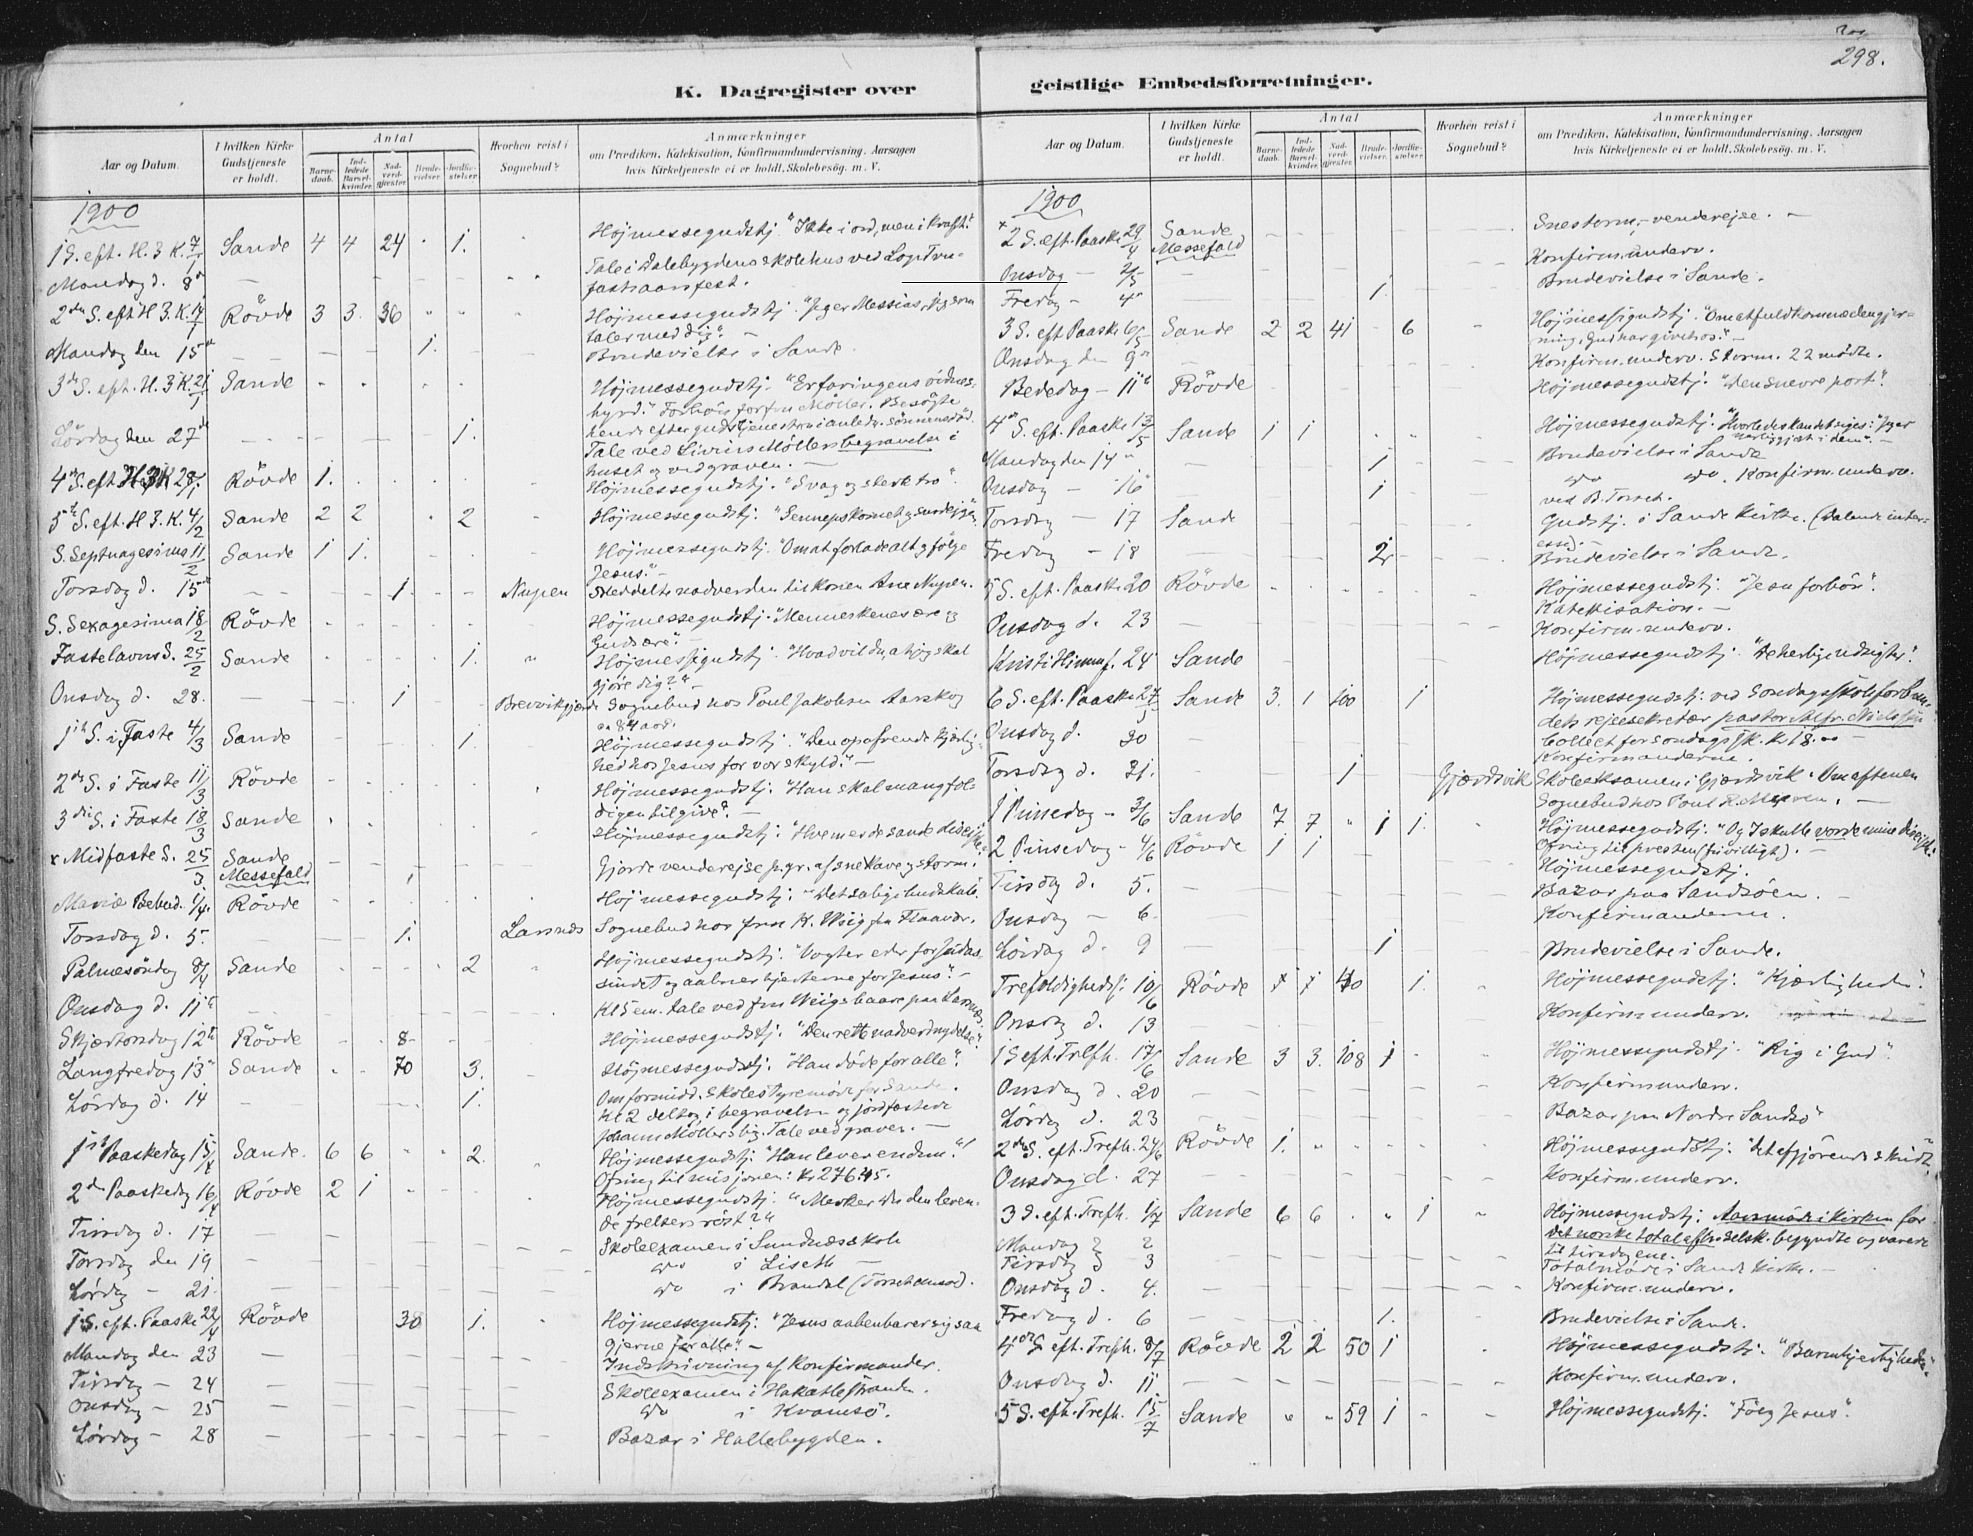 298.
K. Dagregister over geistlige Embedsforretninger.
Aar og Datum.
I hvilken Kirke Gudstjeneste er holdt.
Antal
Barnedaab.
Indledede Barselkvinder.
Nadverdgjester.
Brudevielser.
Jordfæstelser.
Hvorhen reist i Sognebud?
Anmærkninger
om Prædiken, Katekisation, Konfirmandundervisning. Aarsagen
hvis Kirketjeneste ei er holdt. Skolebesøg. m. V.
1900
1 S. eft. H. 3 K. 7/1 Sande 4 4 24 1. Højmessegudstj. "Ikke i ord, men i kraft."
Mandag d. 8de Tale i Dalebygdens skolehus ved
fastiaarsfest.
2den S. eft H 3. K. 14/1 Rövde 3 3. 36 Højmessegudstj. "Jeg er Messias, jeg som
taler med dig". —
Mandag den 15de 1. Brudevielse i Sande.
3de S. eft. H. 3 K. 21/1 Sande Højmessegudstj. "Erfaringens
Lördag den 27de 1. Tale ved Møllers begravelse i
huset og ved graven. —
4de S. eft H 3 K 28/1. Rövde 1. Højmessegudstj. "Svag og sterk tro".
5te S. eft. H 3. K. 4/2 Sande 2 2 2 Højmessegudstj. "Sennepskornet og surdejgen"
S. Septuagesima 11/2 Sande 1 1. Højmessegudstj. "Om at forlade alt og følge
Jesus." —
Torsdag d. 15de 1. Nupen Meddelte nadverden til konen Ane Nupen.
S. Sexagesima 18/2 Rövde Højmessegudstj. "Menneskenes ære og
Guds ære".
Fastelavns S. 25/2 Sande 1. Højmessegudstj. "Hvad vil du, at jeg skal
gjøre dig?" —
Onsdag d. 28. 1 Brevvikjorde Sognebud hos Poul Jakobsen Aarskog
84 aar.
1ste S. i Faste 4/3 Sande 1. Højmessegudstj. "Den opofrende kjærlig-
hed hos Jesus for vor skyld." —
2den S. i Faste 11/3 Rövde Højmessegudstj. "Han skal mangfol-
digen tilgive". —
3die S. i Faste 18/3 Sande Højmessegudstj. "Hvem er de sande disciple"
x Midfaste S. 25/3 Sande Messefald Gjorde venderejse pgr. af snekave og storm.
Mariæ Bebud. 1/4. Rövde Højmessegudstj: "Det salige budskab".
Torsdag d. 5. 1. Larsnes Sognebud hos fru K. Wiig
Palmesöndag 8/4 Sande 2 Højmessegudstj: "Vogter eder for Judas-
sindet og aabner hjerterne for Jesus". —
Onsdag d. 11te Kl 5 em. tale ved fru Wiigs baare paa Larsnes
Skjærtorsdag 12te Rövde 8 Højmessegudstj: "Den rette nadverdnydelse".
Langfredag 13de Sande 70 3. Højmessegudstj: "Han døde for alle".
Om formidd. Skolestyremøde for Sande.
Lördag d. 14 1. Kl 2 deltog i begravelsen og jordfæstede
Tale ved graven. —
1ste Paaskedag 15/4 Sande. 6 6 2. Højmessegudstj: "Han lever endnu."
Ofring til misjonen: Kr 276.45.
2den Paaskedag 16/4 Rövde 2 1 Højmessegudstj: "Merker du den leven-
de frelsers röst?"
Tirsdag d. 17 Skoleexamen i Sundnæs skole
Torsdag den 19 do i Liseth —
Lördag — 21. do i Brandal
1 S. eft. Paaske 22/4 Rövde 30 1. Højmessegudstj: "Jesus aabenbarer sig saa
gjerne for alle". —
Mandag den 23 Indskrivning af konfirmander.
Tirsdag — 24 Skoleexamen i Hakallestranden.
Onsdag — 25 do i Kvamsö.
Lördag — 28 Bazar i Hallebygden.
1900
x 2 S. eft. Paaske 29/4 Sande Messefald Snestorm, — venderejse. —
Onsdag — 2/5 Konfirm. underv.
Fredag — 4de 1. Brudevielse i Sande.
3 S. eft Paaske 6/5 Sande 2 2 41 6 Højmessegudstj. "Om at fuldkomme den gjer-
ning, Gud har givet os". —
Onsdag den 9de Konfirm. underv. Storm. 22 mödte.
Bededag — 11te Rövde Højmessegudstj: "Den snevre port".
4de S. eft. Paaske 13/5 Sande 1 1 Højmessegudstj: "Hvorledes kan det siges: "jeg er
herliggjort i dem". —
Mandag den 14de 1 Brudevielse i Sande
Onsdag — 16 1 do do. Konfirm. underv.
ved B. Torset.
Torsdag — 17 Sande Gudstj. i Sande Kirke.
Fredag — 18 2 Brudevielse i Sande.
5 S. eft. Paaske 20 Rövde Højmessegudstj: "Jesu forbön".
Katekisation. —
Onsdag d. 23 Konfirm. underv.
Kristi Himmf. 24 Sande Højmessegudstj: "De herlige udsigter".
6 S. eft. Paaske 27/5 Sande 3. 1 100 1 Højmessegudstj: ved Söndagsskoleforbun-
dets rejsesekretær pastor Alfr. Nielssen
Collect for söndagssk. Kr 18.00 —
Onsdag d. 30 Konfirmanderne.
Torsdag d. 31. 1 Gjærdsvik Skoleeksamen i Gjærdsvik. Om aftenen
Sognebud hos Poul —
1 Pinsedag — 3/6 Sande 7 7 1 1. Højmessegudstj: "Og I skulle vorde mine disciple".
Ofring til presten (frivilligt). —
2 Pinsedag — 4/6 Rövde 1 1 Højmessegudstj.
Tirsdag d. 5. Bazar paa Sandsöen. —
Onsdag — 6. Konfirmanderne.
Lördag d. 9 1 Brudevielse i Sande.
Trefoldigheds. 10/6 Rövde 7 7 40 1. Højmessegudstj: "Kjærligheden".
Onsdag d. 13 Konfirm underv.
1 S eft. Trefh. 17/6 Sande 3 3. 108 1 Højmessegudstj: "Rig i Gud".
Onsdag d. 20 Konfirm underv.
Lördag d. 23 Bazar paa Nordre Sandsö
2den S. eft. Trefh. 24/6 Rövde 1. Højmessegudstj: "det afgjörende skridt".
Onsdag d. 27 Konfirm. underv.
3 S. eft. Trefh. 1/7 Sande 6 6 1 Højmessegudstj: Aarsmöde i kirken for
det norske totalafh. selsk. begyndte og varede
til tirsdagene.
Mandag d 2
Tirsdag d 3 Totalmöde i Sande Kirke. —
Onsdag d. 4. Konfirm. underv.
Fredag d. 6 1. Brudevielse i Sande.
4de S. eft. Trefh. 8/7 Rövde 2 2 50 1 Højmessegudstj: "Barmhjertigheden".
Onsdag d. 11 Konfirm. underv.
5 S. eft. Trefh. 15/7 Sande 59 1 Højmessegudstj: "Følg Jesus".